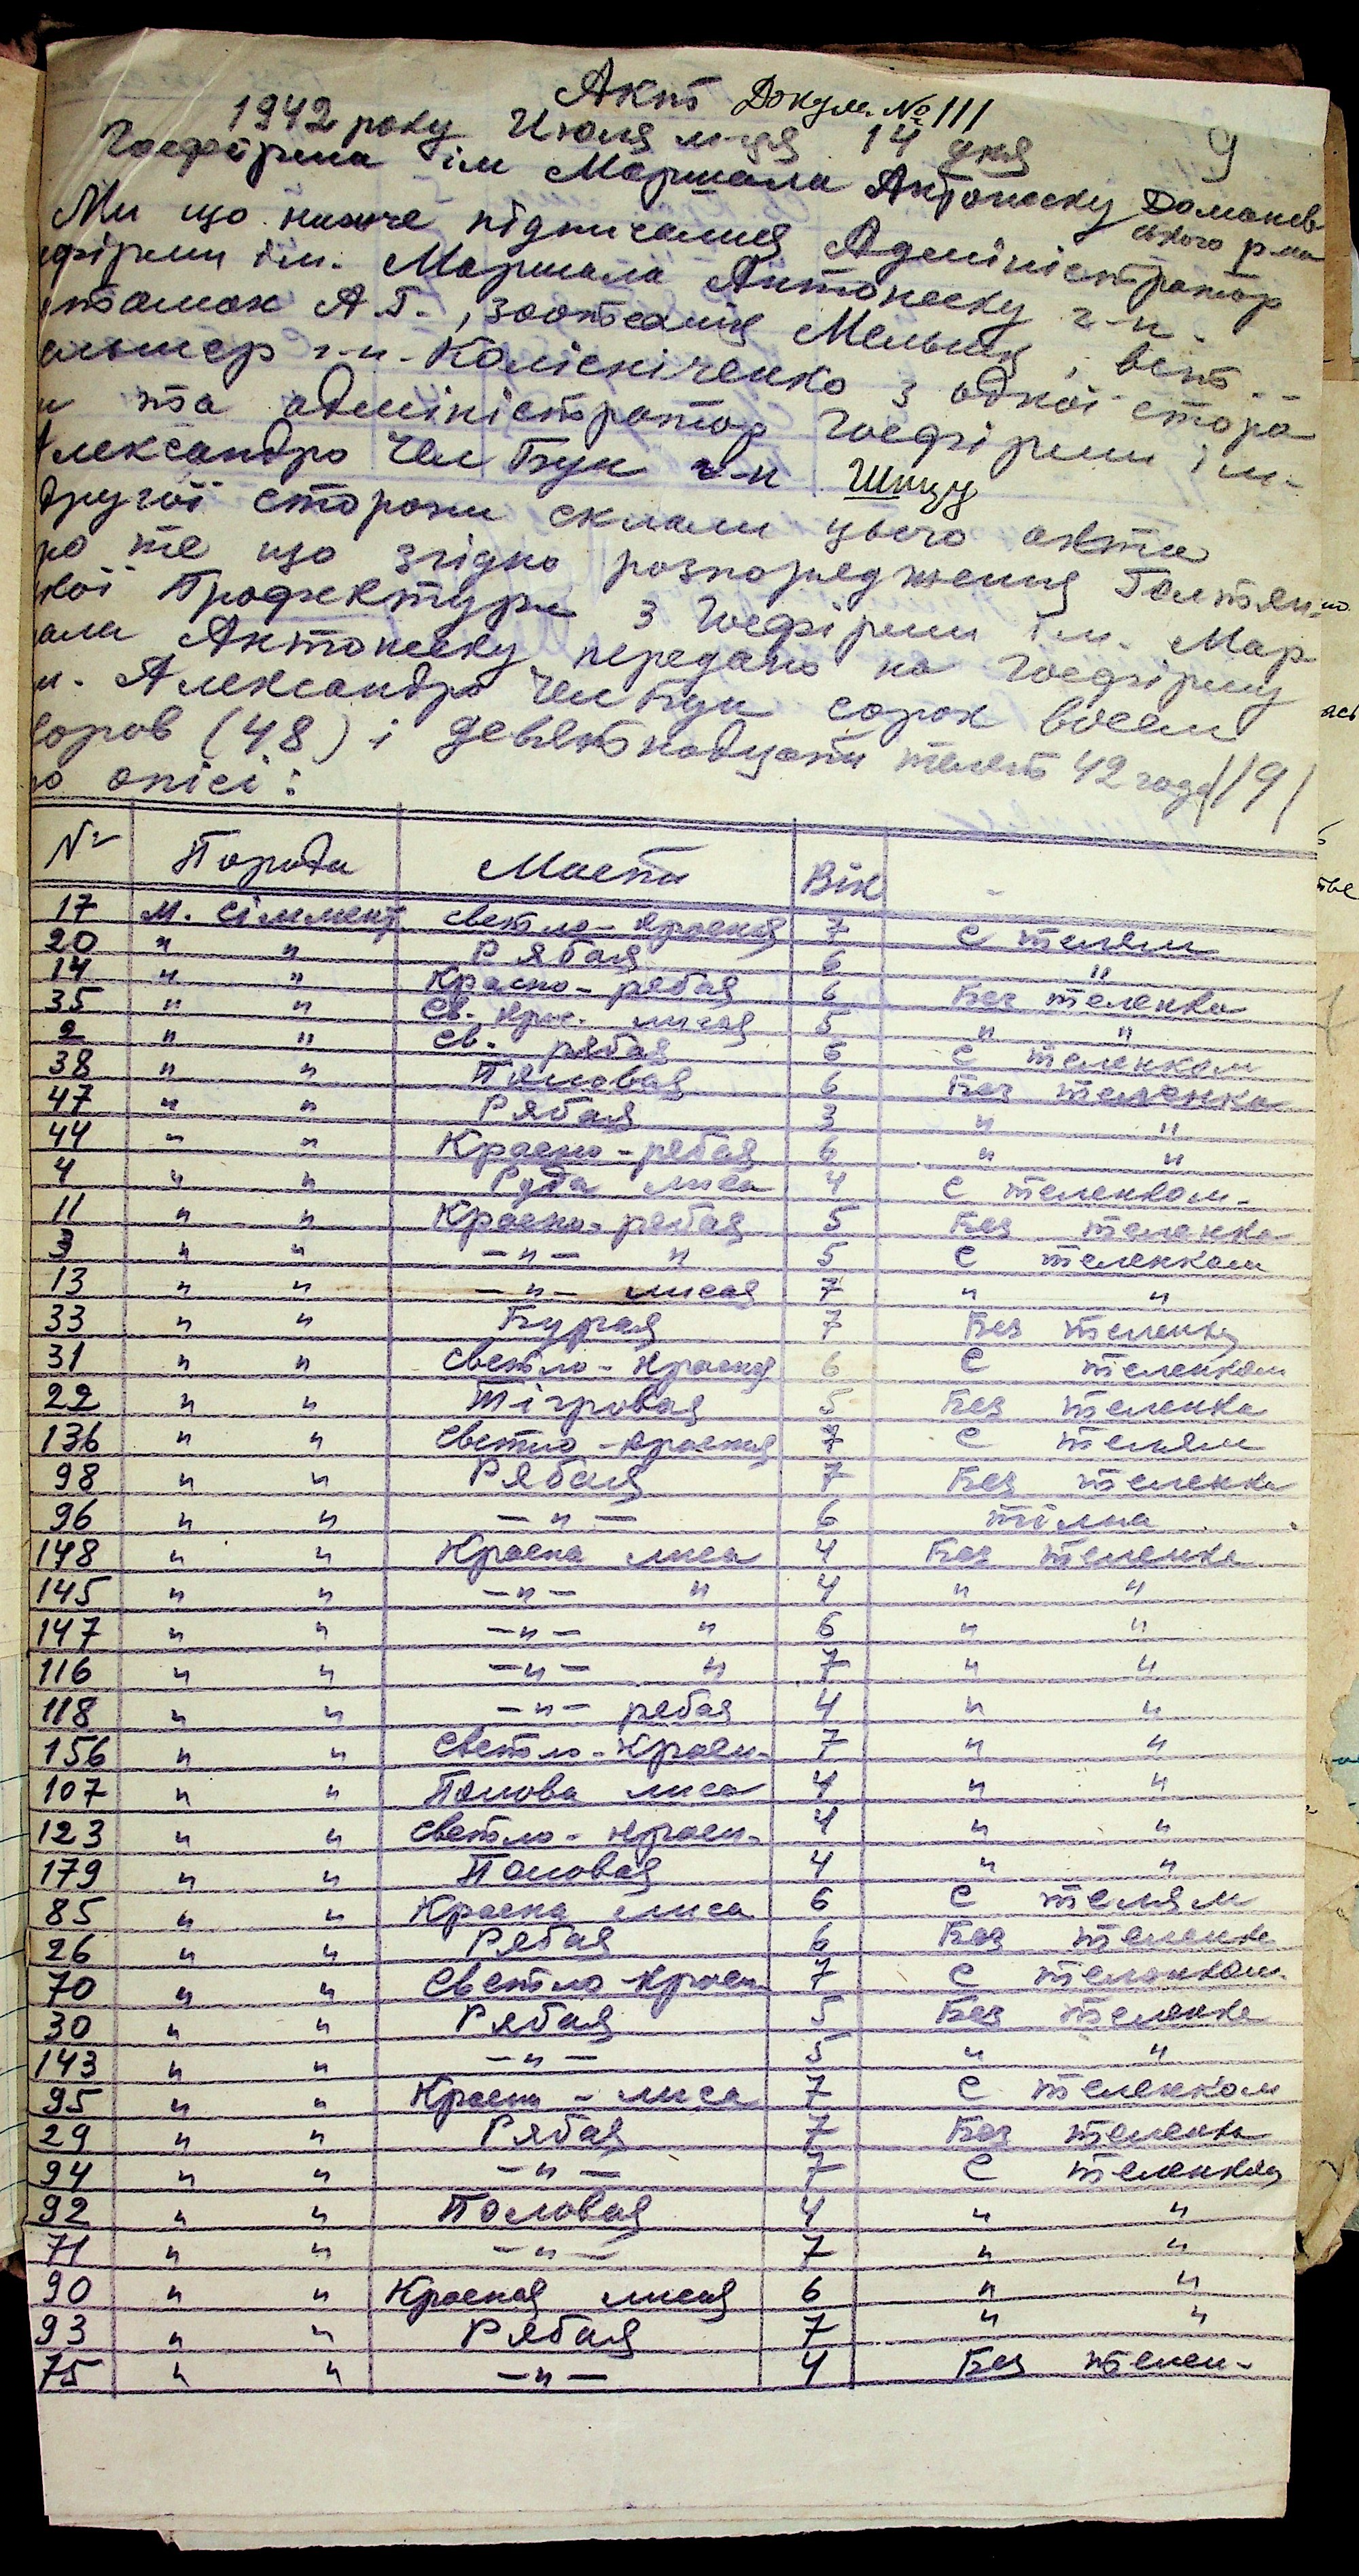 Акт Докум. № 111
1942 року Июля м-ця 14 дня 9
Госфірма ім Маршала Антонеску Доманев-
ского р-на
Ми що нижче підписалися Адміністратор
фірми ім. Маршала Антонеску г-н
А.Г., зоотехнік Мельник, вет.
г-н. Колісніченко з одної сторо
та адміністратор Госфірми ім.
лександро Чел Бун г-н Шицу
другої сторони склали цього акта
ро те що згідно розпорядження Голтян-
кої Профектури з Госфірми ім. Мар
ала Антонеску передано на Госфірму
м. Александро Чел Бун сорок восем
оров (48) і девятнадцать телят 42 года /19/
о опісі:
№ Порода Масть Вік -
17 М. Сіммент Светло-красная 7 С телям
20 " " Рябая 6 "
14 " " Красно-рябая 6 Без теленка
35 " " Св. крас. лисая 5 " "
2 " " Св. рябая 6 С теленком
38 " " Половая 6 Без теленка
47 " " Рябая 3 " "
44 " " Красно-рябая 6 " "
4 " " Руда лиса 4 С теленком.
11 " " Красно-рябая 5 Без теленка
3 " " —"— " 5 С теленком
13 " " —"— лисая 7 " "
33 " " Бурая 7 Без теленка
31 " " Светло-красная 6 С теленком
22 " " Тігровая 5 Без теленка
136 " " Светло-красная 7 С телям
98 " " Рябая 7 Без теленка
96 " " —"— 6 тільна
148 " " Красна лиса 4 Без теленка
145 " " —"— " 4 " "
147 " " —"— " 6 " "
116 " " —"— " 7 " "
118 " " —"— рябая 4 " "
156 " " Светло-красн. 7 " "
107 " " Полова лиса 4 " "
123 " " Светло-красн. 4 " "
179 " " Половая 4 " "
85 " " Красна лиса 6 С телям
26 " " Рябая 6 Без теленка
70 " " Светло-красн 7 С теленком.
30 " " Рябая 5 Без теленка
143 " " —"— 5 " "
95 " " Красна-лиса 7 С теленком
29 " " Рябая 7 Без теленка
94 " " —"— 7 С теленком
92 " " Половая 4 " "
71 " " —"— 7 " "
90 " " Красная лисая 6 " "
93 " " Рябая 7 " "
75 " " —"— 4 Без телен-